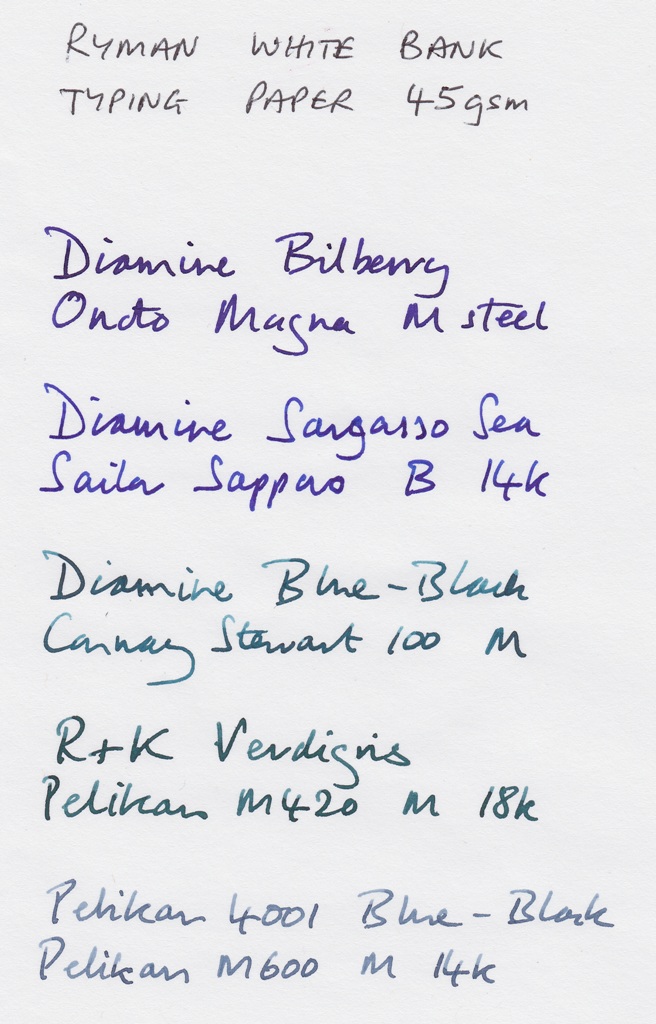 RYMAN WHITE BANK
TYPING PAPER 45gsm
Diamine Bilberry
Onoto Magna M steel
Diamine Sargasso Sea
Sailor Sapporo B 14k
Diamine Blue-Black
Conway Stewart 100 M
R+K Verdigris
Pelikan M420 M 18k
Pelikan 4001 Blue-Black
Pelikan M600 M 14k